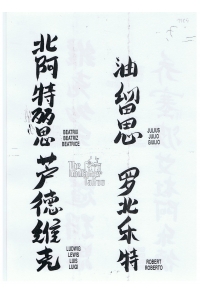 北阿特丽思
BEATRIX
BEATRIZ
BEATRICE
油留思
JULIUS
JULIO
GIULIO
芦德维克
LUDWIG
LEWIS
LUIS
LUIGI
罗北尔特
ROBERT
ROBERTO
The